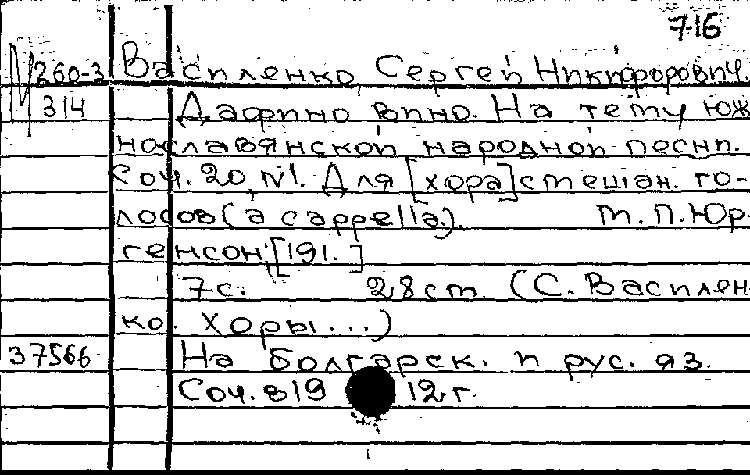 716
N260-3 Василенко, Сергей Никифорович.
314 Дафино вино. На тему юж
нославянской народной песни.
Соч. 20, N1. Для [хора] смешан. го-
лосов (a cappella). М. П. Юр
генсон, [191. ]
7 с. 28 cm. (С. Василен
ко. Хоры...)
37566 На болгарск. и рус. яз.
Соч. в 19 12, г.